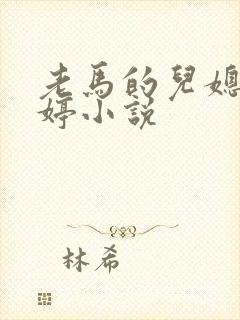 老馬的兒媳
婷小說
林希